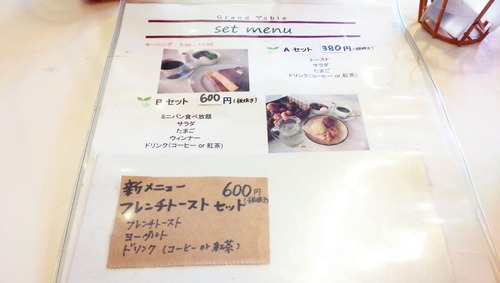 Grand Table
set menu
モーニング 7:00 - 11:00
A セット 380円(税抜き)
トースト
サラダ
たまご
ドリンク(コーヒー or 紅茶)
B セット 600円(税抜き)
ミニパン食べ放題
サラダ
たまご
ウィンナー
ドリンク(コーヒー or 紅茶)
新メニュー 600円(税抜き)
フレンチトースト セット
フレンチトースト
ヨーグルト
ドリンク (コーヒー or 紅茶)